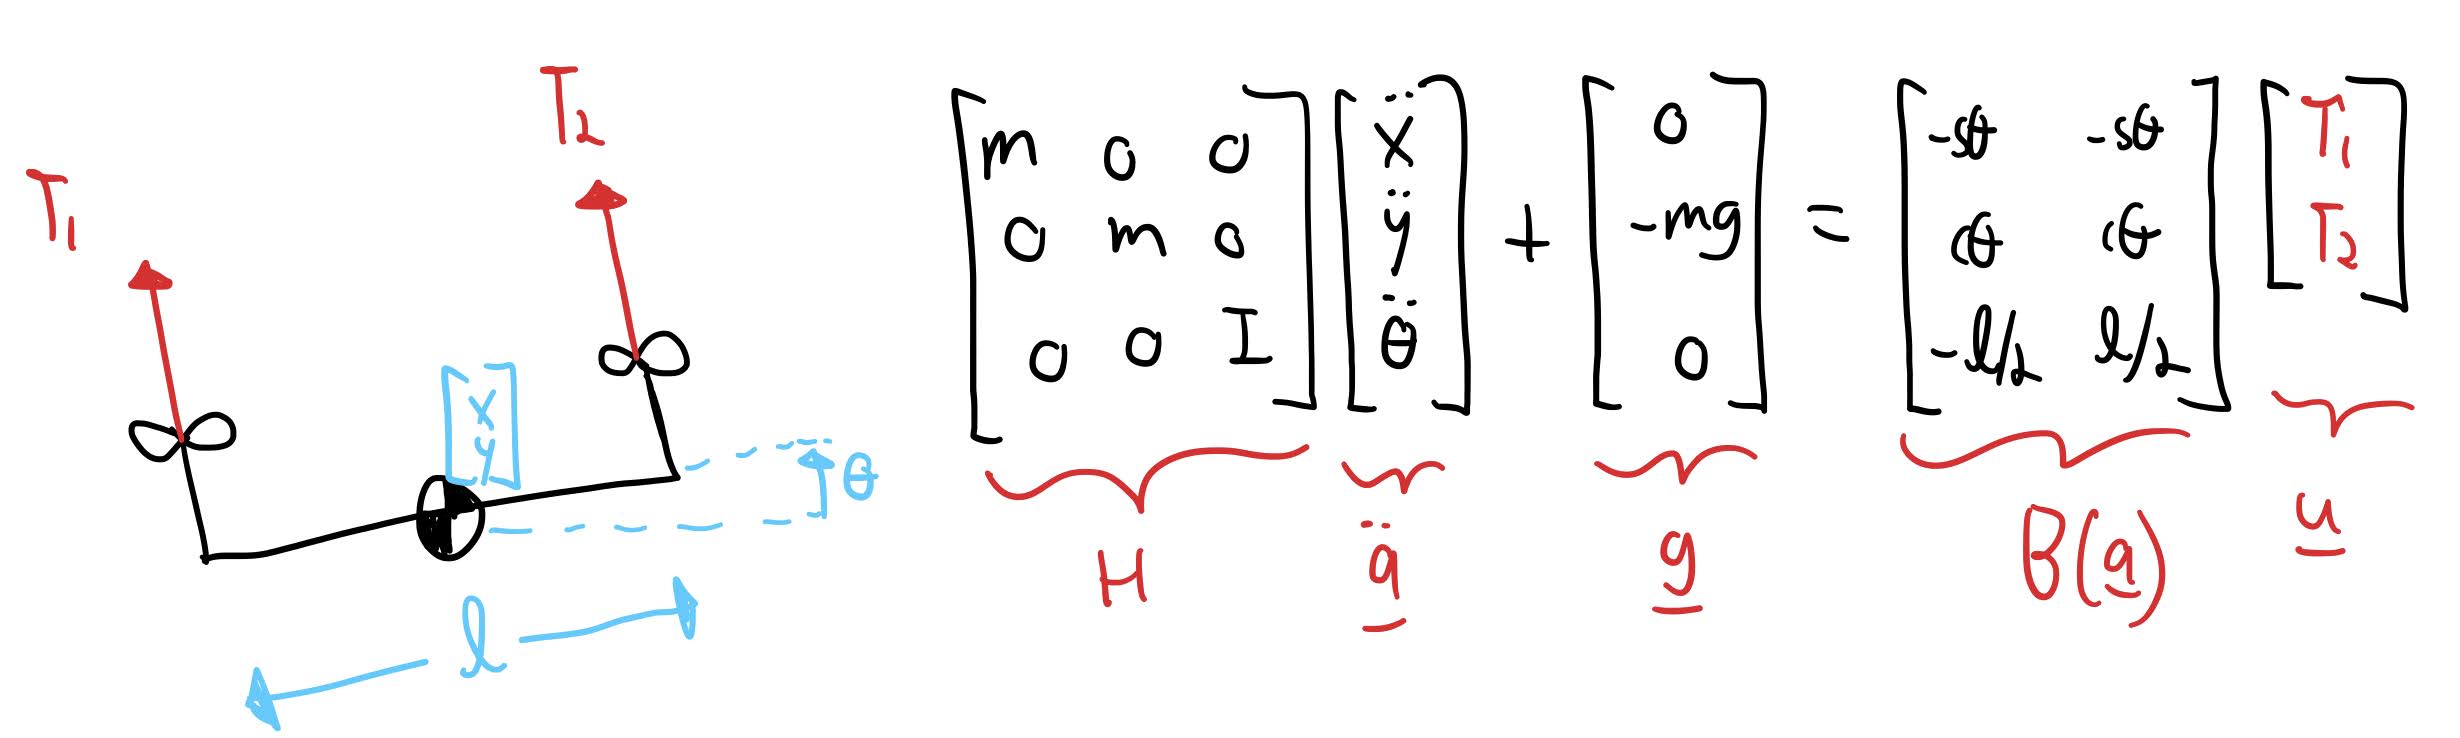 T₁
T₂
[x
y]
θ
l
[m 0 0
0 m 0
0 0 I]
[ẍ
ÿ
θ̈]
+
[0
-mg
0]
=
[-sθ -sθ
cθ cθ
-l/2 l/2]
[T₁
T₂]
H
q̈
g
B(q)
u